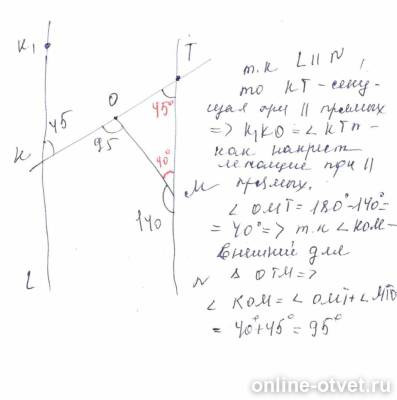 K₁
T
45
O
45°
K
95
40°
M
140
L
N
т.к L || N
то KT - секу-
щая при || прямых
=> K₁KO = ∠ KTM -
как накрест
лежащие при ||
прямых.
∠ OMT = 180° - 140° =
= 40° => т.к ∠ KOM -
внешний для
Δ OTM =>
∠ KOM = ∠ OMT + ∠ MTO
= 40° + 45° = 95°
online-otvet.ru